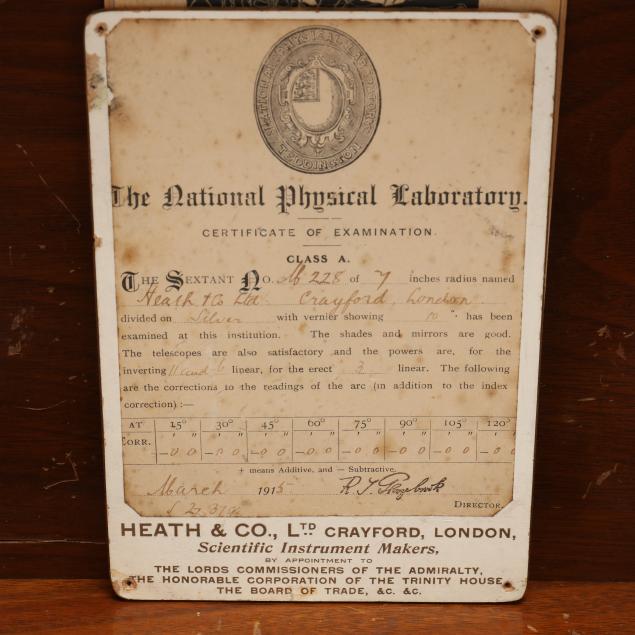 NATIONAL PHYSICAL LABORATORY
TEDDINGTON
The National Physical Laboratory.
CERTIFICATE OF EXAMINATION.
CLASS A.
THE SEXTANT NO. M 228 of 7 inches radius named
Heath & Co Ltd Crayford, London
divided on Silver with vernier showing 10" has been
examined at this institution. The shades and mirrors are good.
The telescopes are also satisfactory and the powers are, for the
inverting 11 and linear, for the erect 3 linear. The following
are the corrections to the readings of the arc (in addition to the index
correction) :—
AT 15° 30° 45° 60° 75° 90° 105° 120°
' " ' " ' " ' " ' " ' " ' " ' "
CORR. —0 0 —0 0 —0 0 —0 0 —0 0 —0 0 —0 0 —0 0
+ means Additive, and — Subtractive.
March 1915 R. T. Glazebrook
DIRECTOR.
HEATH & CO., LTD CRAYFORD, LONDON,
Scientific Instrument Makers,
BY APPOINTMENT TO
THE LORDS COMMISSIONERS OF THE ADMIRALTY,
THE HONORABLE CORPORATION OF THE TRINITY HOUSE
THE BOARD OF TRADE, &C. &C.